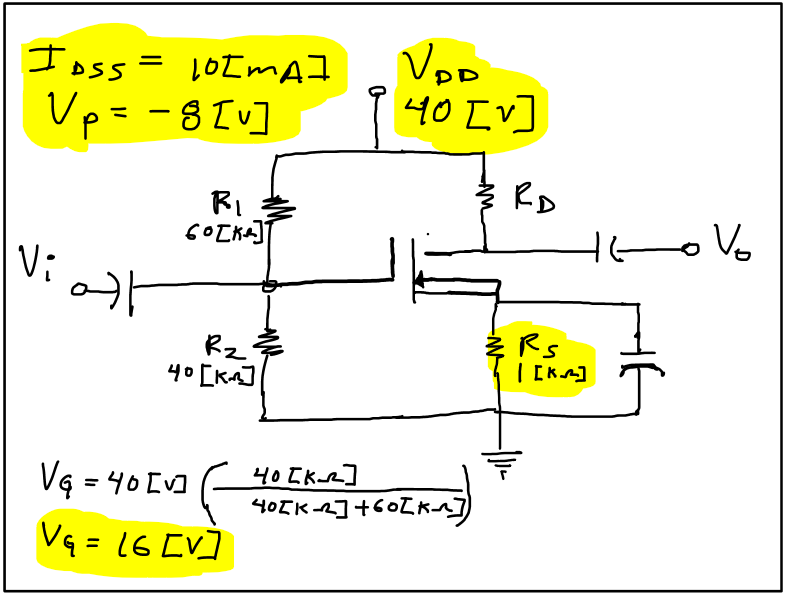 I DSS = 10[mA]
Vp = -8[V]
VDD
40[V]
R1
60[KΩ]
RD
Vi
Vo
R2
40[KΩ]
RS
1[KΩ]
VG = 40[V] ( 40[KΩ] / 40[KΩ]+60[KΩ] )
VG = 16[V]